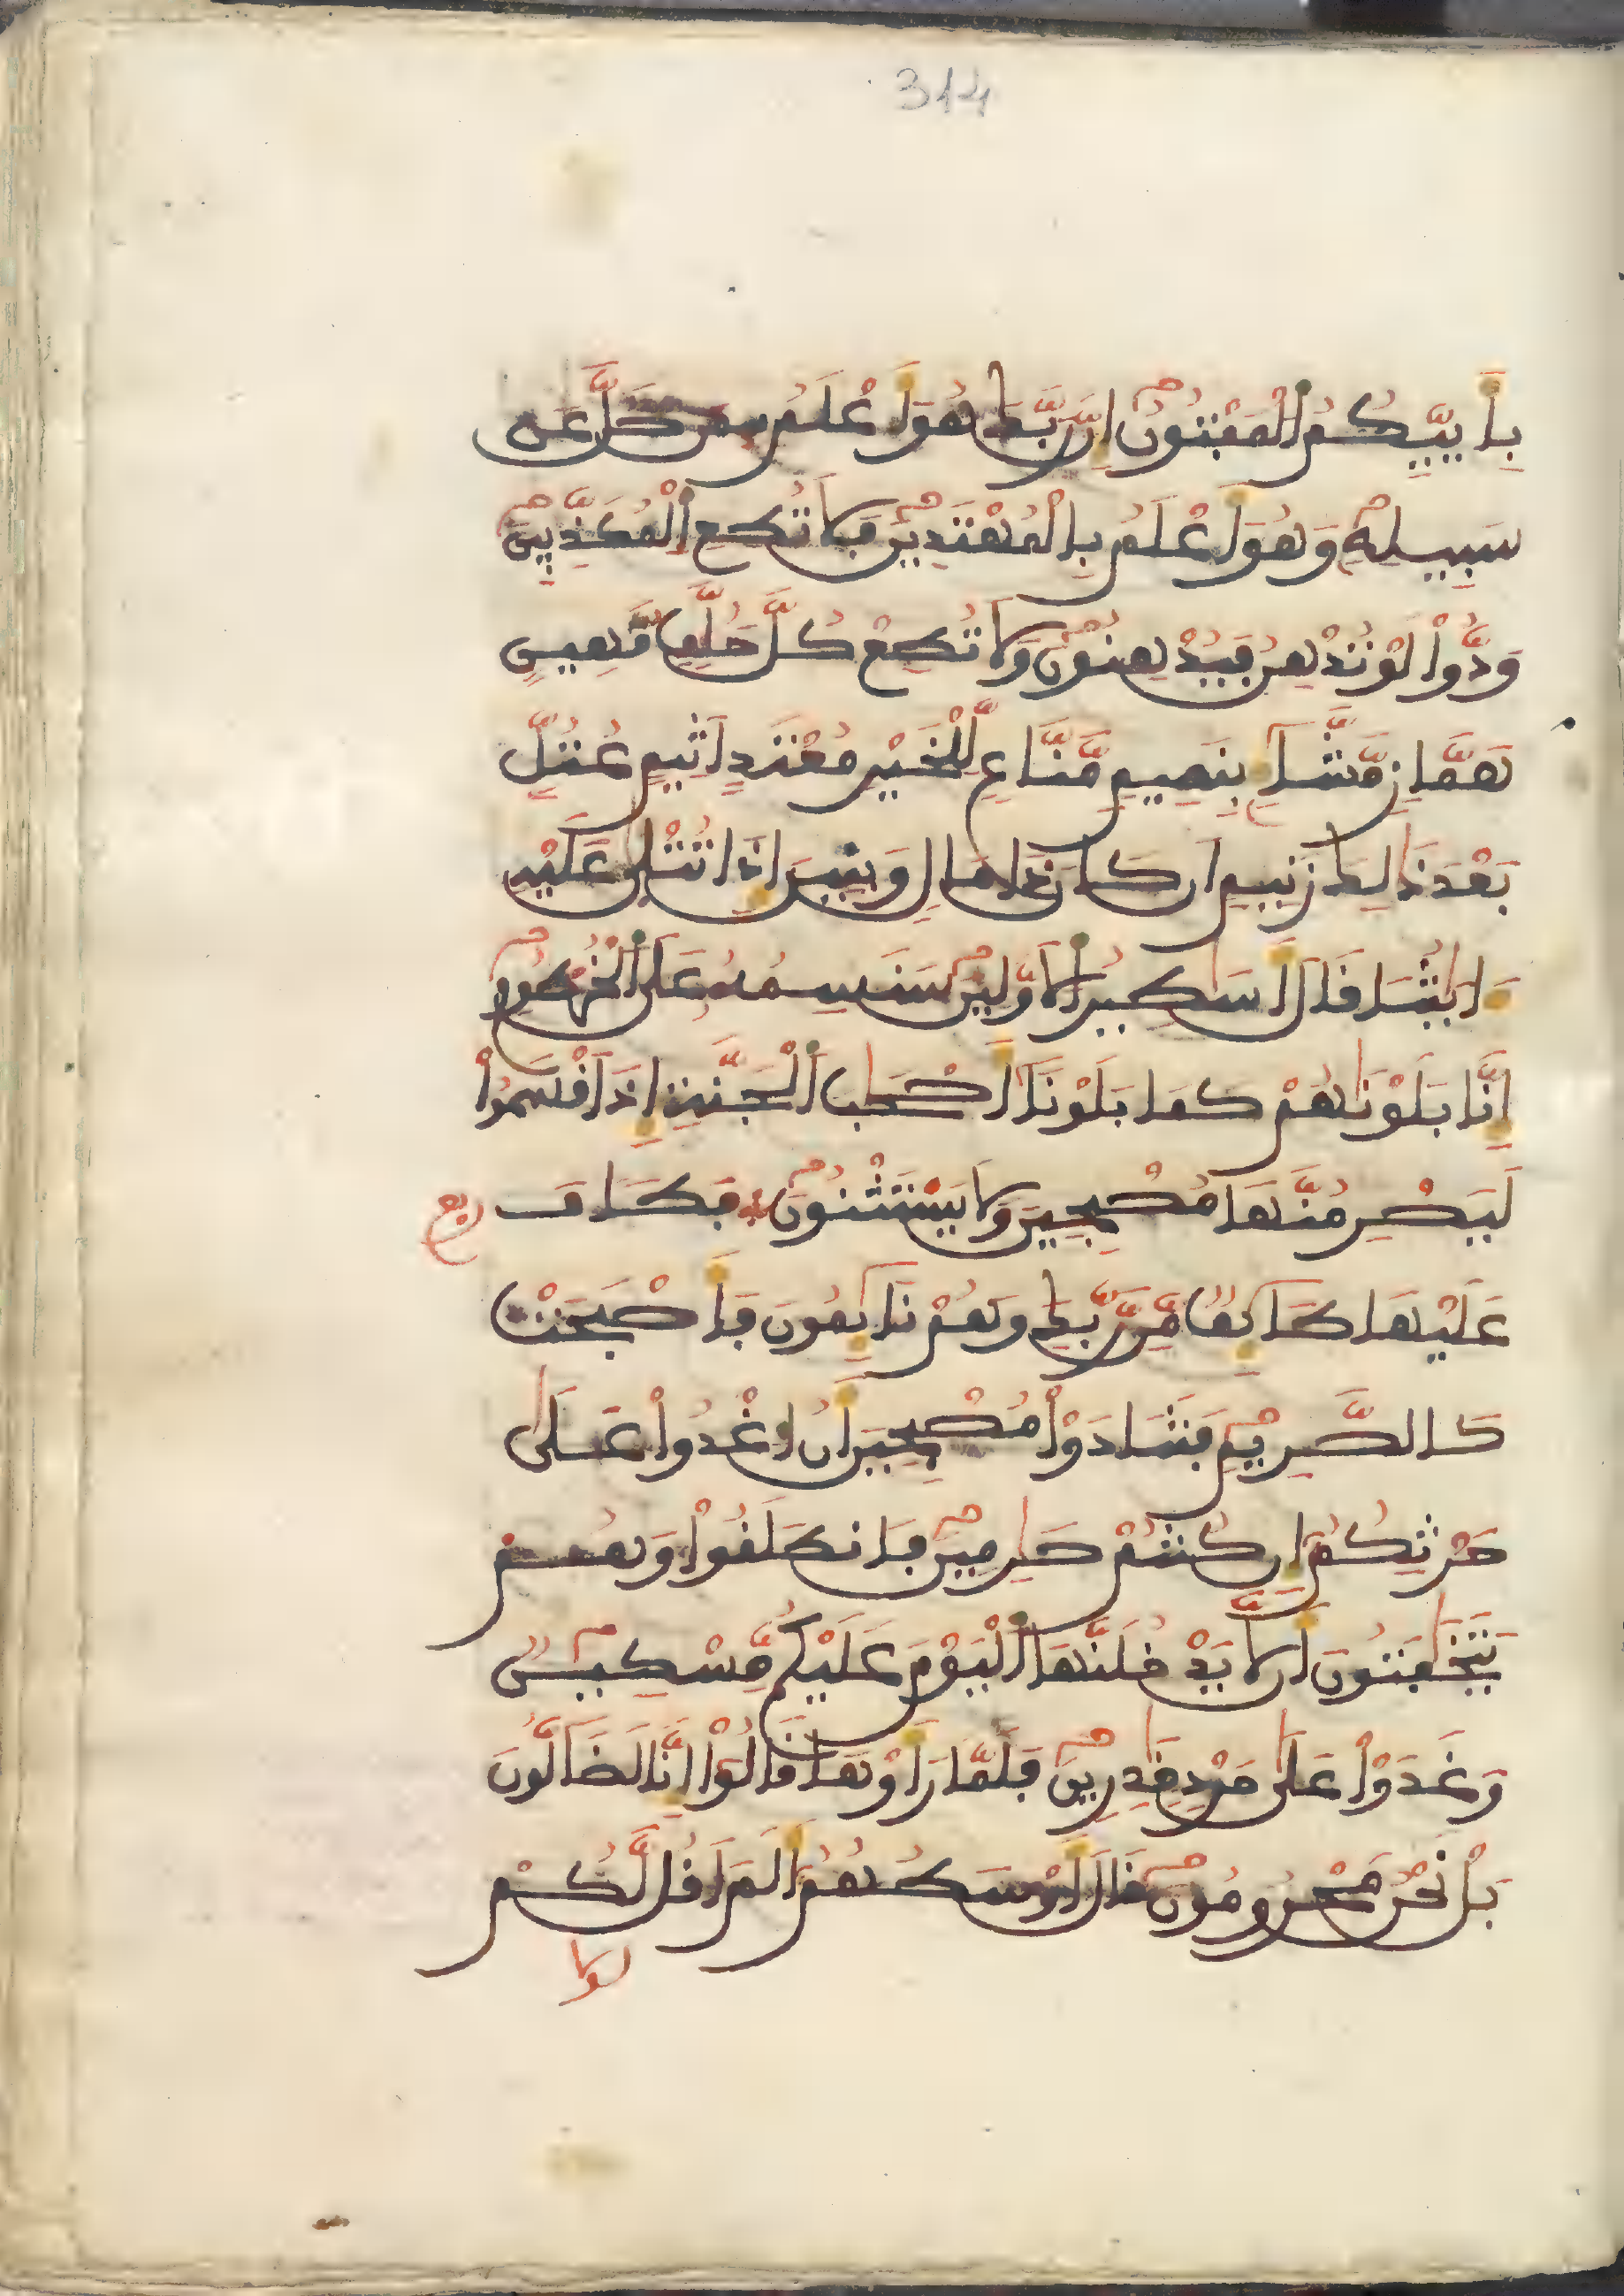 314
بِأَييِّكُمُ اَلْمَفْتُونُ إِنَّ رَبَّكَ هُوَ أَعْلَمُ بِمَن ضَلَّ عَن
سَبِيلِهِ وَهُوَ أَعْلَمُ بِالْمُهْتَدِينَ فَلَا تُطِعِ اِلْمُكَذِّبِينَ
وَدُّواْ لَوْ تُدْهِنُ فَيُدْهِنُونَ وَلَا تُطِعْ كُلَّ حَلَّافٖ مَّهِينٍ
هَمَّازٖ مَّشَّآءِۢ بِنَمِيمٖ مَّنَّاعٖ لِّلْخَيْرِ مُعْتَدٍ اَثِيمٍ عُتُلِّۢ
بَعْدَ ذَٰلِكَ زَنِيمٍ اَن كَانَ ذَا مَالٖ وَبَنِينَ إِذَا تُتْلَىٰ عَلَيْهِ
ءَايَٰتُنَا قَالَ أَسَٰطِيرُ اُلَاوَّلِينَ سَنَسِمُهُۥ عَلَى اَلْخُرْطُومِ
إِنَّا بَلَوْنَٰهُمْ كَمَا بَلَوْنَآ أَصْحَٰبَ اَلْجَنَّةِ إِذَ اَقْسَمُواْ
لَيَصْرِمُنَّهَا مُصْبِحِينَ وَلَا يَسْتَثْنُونَ فَطَافَ
ربع
عَلَيْهَا طَآئِفٞ مِّن رَّبِّكَ وَهُمْ نَآئِمُونَ فَأَصْبَحَتْ
كَالصَّرِيمِ فَتَنَادَوْاْ مُصْبِحِينَ أَنُ اُغْدُواْ عَلَىٰ
حَرْثِكُمُ إِن كُنتُمْ صَٰرِمِينَ فَانطَلَقُواْ وَهُمْ
يَتَخَٰفَتُونَ أَن لَّا يَدْخُلَنَّهَا اَلْيَوْمَ عَلَيْكُم مِّسْكِينٞ
وَغَدَوْاْ عَلَىٰ حَرْدٖ قَٰدِرِينَ فَلَمَّا رَأَوْهَا قَالُوٓاْ إِنَّا لَضَآلُّونَ
بَلْ نَحْنُ مَحْرُومُونَ قَالَ أَوْسَطُهُمُۥٓ أَلَمَ اَقُل لَّكُمْ
لولا